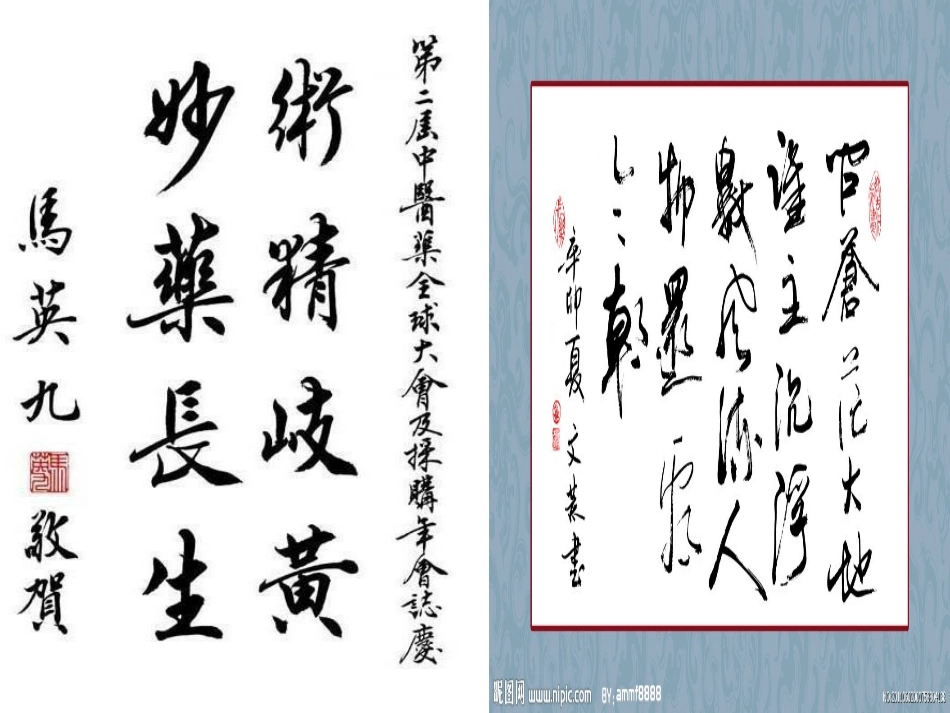 第二屆中醫藥全球大會及採購年會誌慶
術精岐黃
妙藥長生
馬英九
敬賀
問蒼茫大地
誰主沉浮
數風流人
物還看
今朝
辛卯夏 文 書
昵图网 www.nipic.com BY:ammf8888